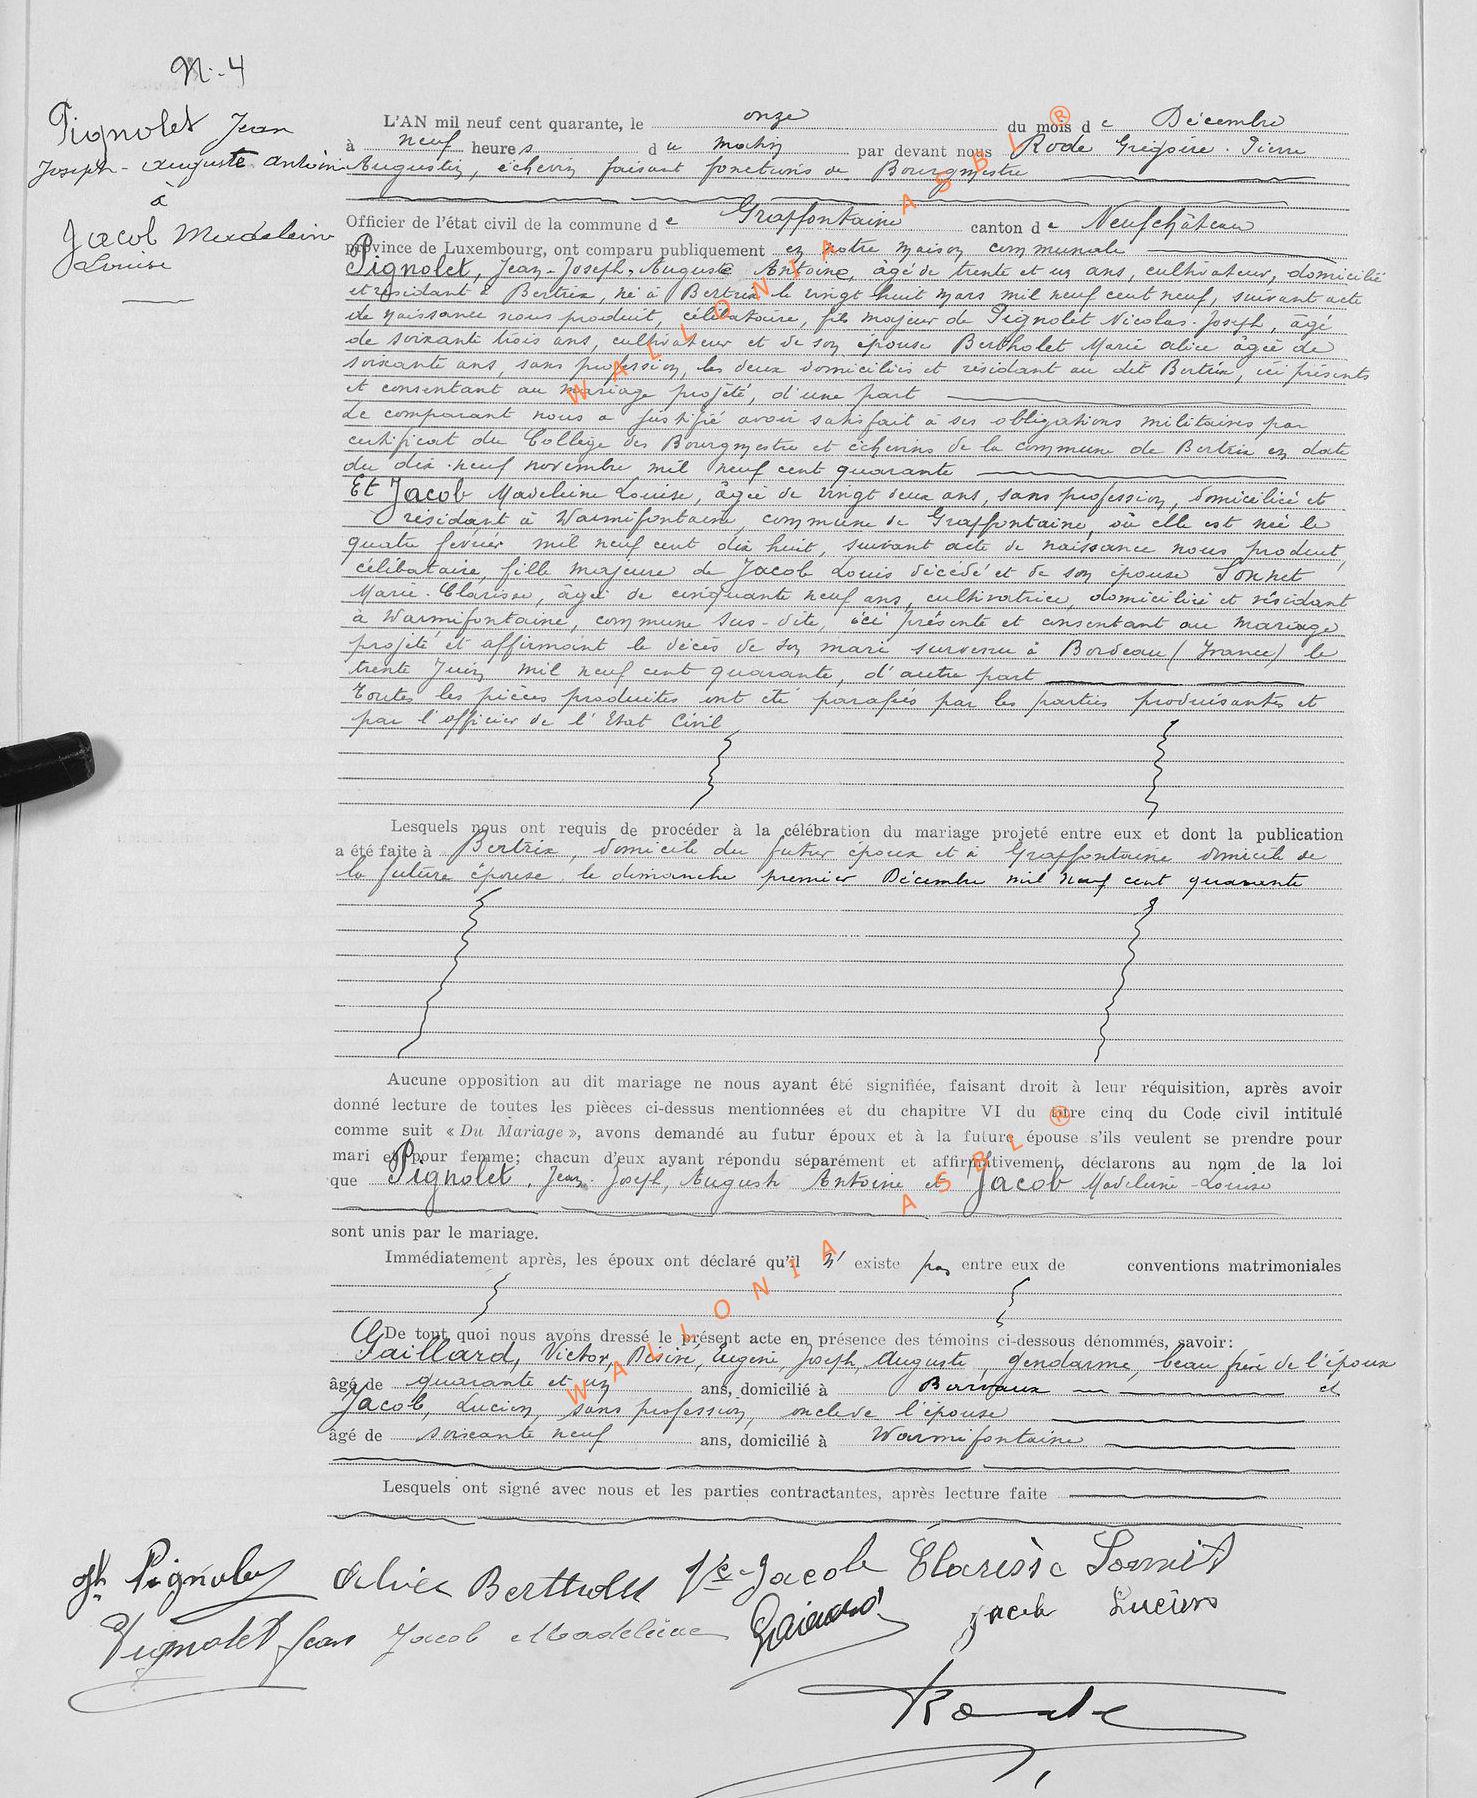 N. 4
Pignolet Jean
Joseph-Auguste Antoine
à
Jacob Madeleine
Louise
L'AN mil neuf cent quarante, le onze du mois de Décembre
à neuf heures du matin par devant nous Rode Grégoire-Pierre
Augustin, échevin faisant fonctions de Bourgmestre
Officier de l'état civil de la commune de Grapfontaine canton de Neufchâteau
province de Luxembourg, ont comparu publiquement en notre maison communale
Pignolet, Jean-Joseph-Auguste Antoine, âgé de trente et un ans, cultivateur, domicilié
et résidant à Bertrix, né à Bertrix le vingt huit mars mil neuf cent neuf, suivant acte
de naissance nous produit, célibataire, fils majeur de Pignolet Nicolas-Joseph, âgé
de soixante trois ans, cultivateur et de son épouse Bertholet Marie Alice âgée de
soixante ans, sans profession, les deux domiciliés et résidant au dit Bertrix, ici présents
et consentant au mariage projeté, d'une part
Le comparant nous a justifié avoir satisfait à ses obligations militaires par
certificat du Collège des Bourgmestre et échevins de la commune de Bertrix en date
du dix-neuf novembre mil neuf cent quarante
Et Jacob Madeleine Louise, âgée de vingt deux ans, sans profession, domiciliée et
résidant à Warmifontaine, commune de Grapfontaine, où elle est née le
quatre février mil neuf cent dix huit, suivant acte de naissance nous produit,
célibataire, fille majeure de Jacob Louis décédé et de son épouse Sonnet
Marie-Clarisse, âgée de cinquante neuf ans, cultivatrice, domiciliée et résidant
à Warmifontaine, commune sus-dite, ici présente et consentant au mariage
projeté et affirmant le décès de son mari survenu à Bordeau (France) le
trente Juin mil neuf cent quarante, d'autre part
Toutes les pièces produites ont été parafées par les parties produisantes et
par l'officier de l'Etat Civil
Lesquels nous ont requis de procéder à la célébration du mariage projeté entre eux et dont la publication
a été faite à Bertrix, domicile du futur époux et à Grapfontaine domicile de
la future épouse le dimanche premier Décembre mil neuf cent quarante
Aucune opposition au dit mariage ne nous ayant été signifiée, faisant droit à leur réquisition, après avoir
donné lecture de toutes les pièces ci-dessus mentionnées et du chapitre VI du titre cinq du Code civil intitulé
comme suit « Du Mariage », avons demandé au futur époux et à la future épouse s'ils veulent se prendre pour
mari et pour femme; chacun d'eux ayant répondu séparément et affirmativement, déclarons au nom de la loi
que Pignolet, Jean-Joseph, Auguste Antoine et Jacob Madeleine-Louise
sont unis par le mariage.
Immédiatement après, les époux ont déclaré qu'il n' existe pas entre eux de conventions matrimoniales
De tout quoi nous avons dressé le présent acte en présence des témoins ci-dessous dénommés, savoir:
Gaillard, Victor, Désiré, Eugène, Joseph, Auguste, gendarme, beau frère de l'époux
âgé de quarante et un ans, domicilié à Barvaux et
Jacob, Lucien, sans profession, oncle de l'épouse
âgé de soixante neuf ans, domicilié à Warmifontaine
Lesquels ont signé avec nous et les parties contractantes, après lecture faite
Jh Pignolet Alice Bertholet Ve Jacob Clarisse Sonnet
Pignolet Jean Jacob Madeleine Gaillard Jacob Lucien
Rode
WALLONIA ASBL ®
WALLONIA ASBL ®